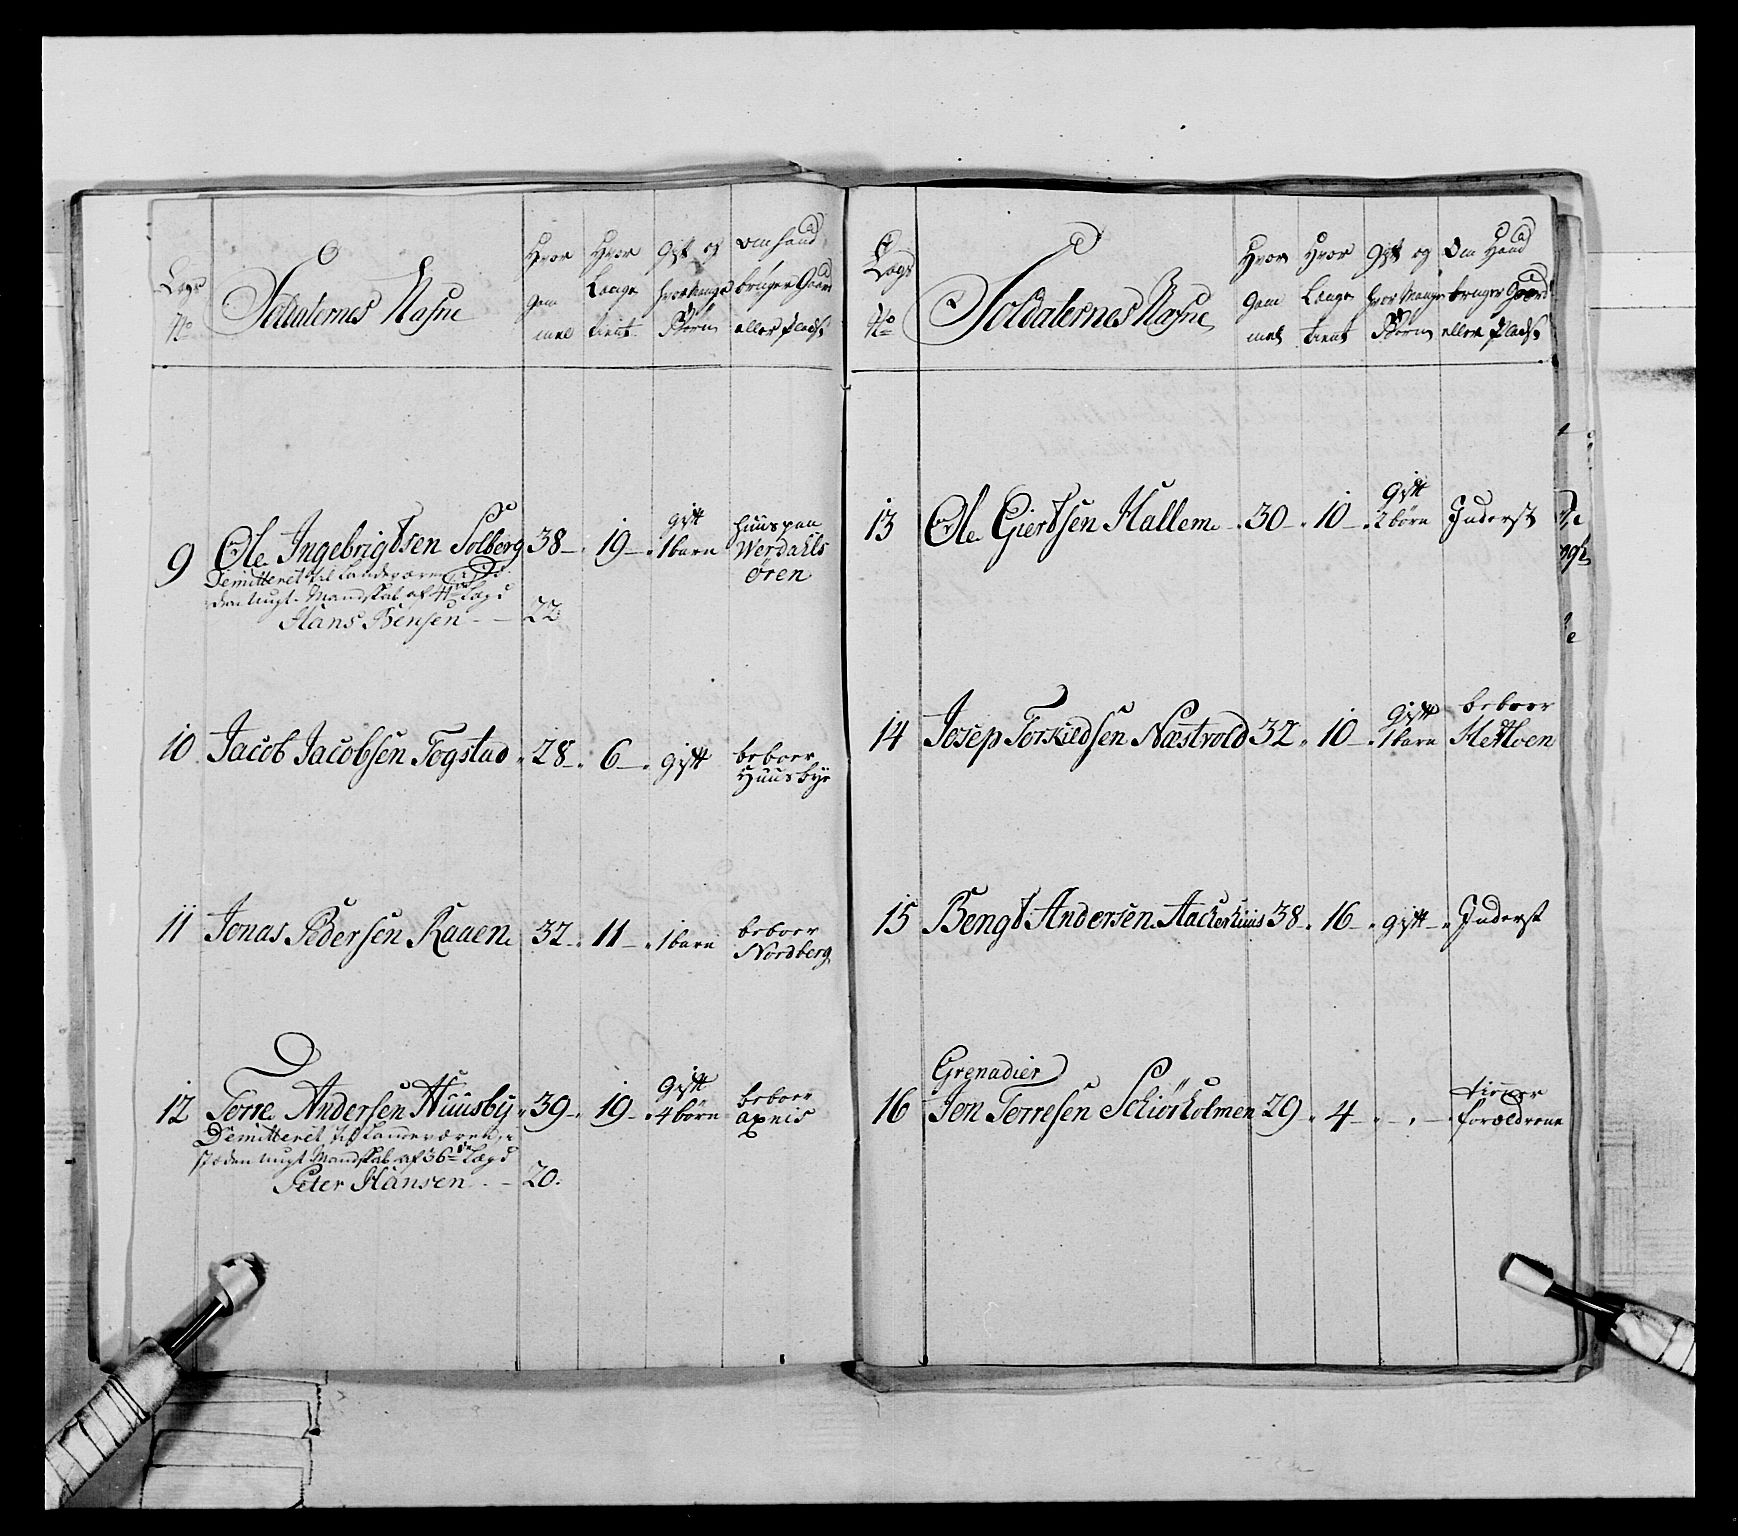 Lægs No Soldaternes Nafne Hvor gammel Hvor Længe tient gift og hvor Mange Børn om hand bruger Gaard eller Plads
9 Ole Ingebrigtsen Solberg 38 19 gift 1 barn Huuspan Werdahls øren
Demitteret til Landeværn i Stæ:
den Ungt Mandskab af 4de Lægd
Hans Bensen 22
10 Jacob Jacobsen Togstad 28 6 gift beboer Huusbye
11 Jonas Pedersen Raaen 32 11 1 barn beboer Nordberg
12 Torre Andersen Huusby 39 19 Gift 4 børn beboer axnes
Demitteret til Landeværn, i
stæden ungt Mandskab af 36de Lægd
Peter Hansen 20
Lægs No Soldaternes Nafne Hvor gammel Hvor Længe tient Gift og hvor Mange Børn Om Hand bruger Gaard eller Plads
13 Ole Giertsen Hallem 30 10 gift 2 børn Inderst
14 Josep Torkildsen Næstvold 32 10 gift 1 barn beboer
15 Bengt Andersen Aackerhuus 38 16 gift Inderst
Grenadier
16 Jon Torresen Schiørholmen 29 4 tiener forældrene